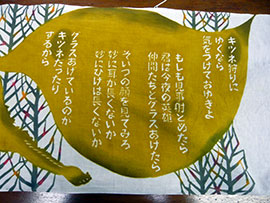 キツネ狩りに
ゆくなら
気をつけておゆきよ
もしも見事射とめたら
君は今夜の英雄
仲間たちとグラスあけたら
そいつの顔を見てみろ
妙に耳が長くないか
妙にひげは長くないか
グラスあけているのが
キツネだったり
するから